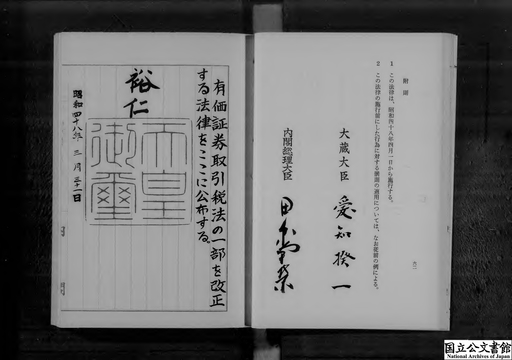 附則
1 この法律は、昭和四十八年四月一日から施行する。
2 この法律の施行前にした行為に対する罰則の適用については、なお従前の例による。
大蔵大臣 愛知揆一
内閣総理大臣 田中角榮
有価証券取引税法の一部を改正
する法律をここに公布する。
裕仁
天皇
御璽
昭和四十八年三月三十一日
国立公文書館
National Archives of Japan